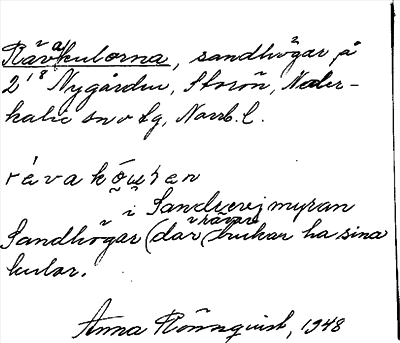 Rävakulorna, sandhögar på
2 18 Nygården, Storön, Neder-
kalix sn o Lg, Norrb. l.
rävakōu̯ɽen
i Sandsvejmyran
Sandhögar (där rävar brukar ha sina
kulor.
Anna Rönnquist, 1948